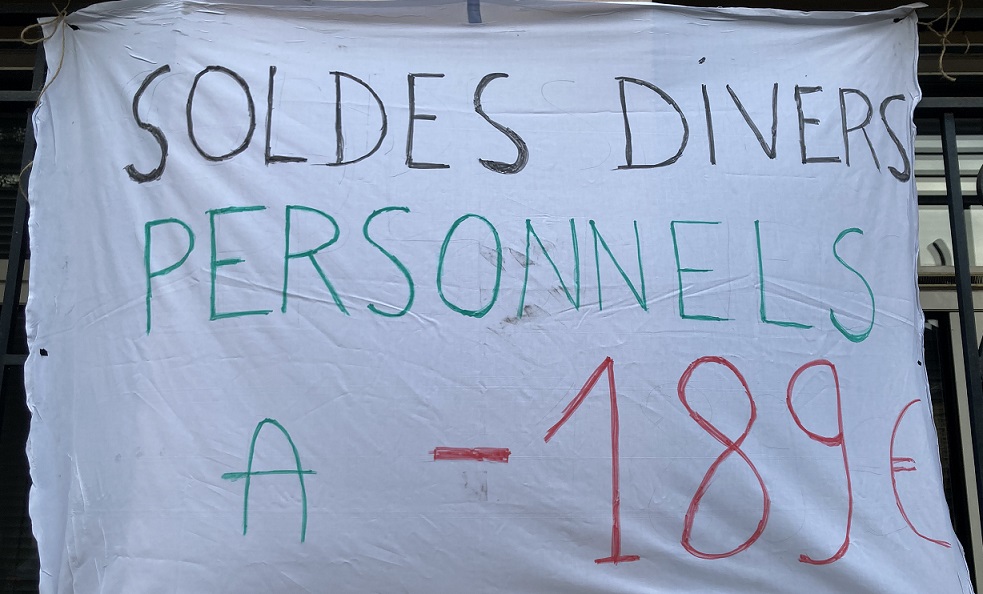 SOLDES DIVERS
PERSONNELS
A -189€